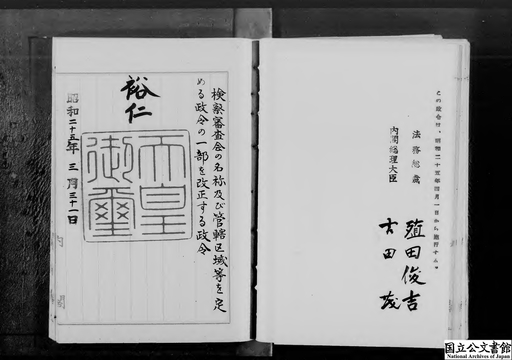 検察審査会の名称及び管轄区域等を定
める政令の一部を改正する政令
裕仁
天皇
御璽
昭和二十五年三月三十一日
この政令は、昭和二十五年四月一日から施行する。
法務総裁
殖田俊吉
内閣総理大臣
吉田茂
国立公文書館
National Archives of Japan